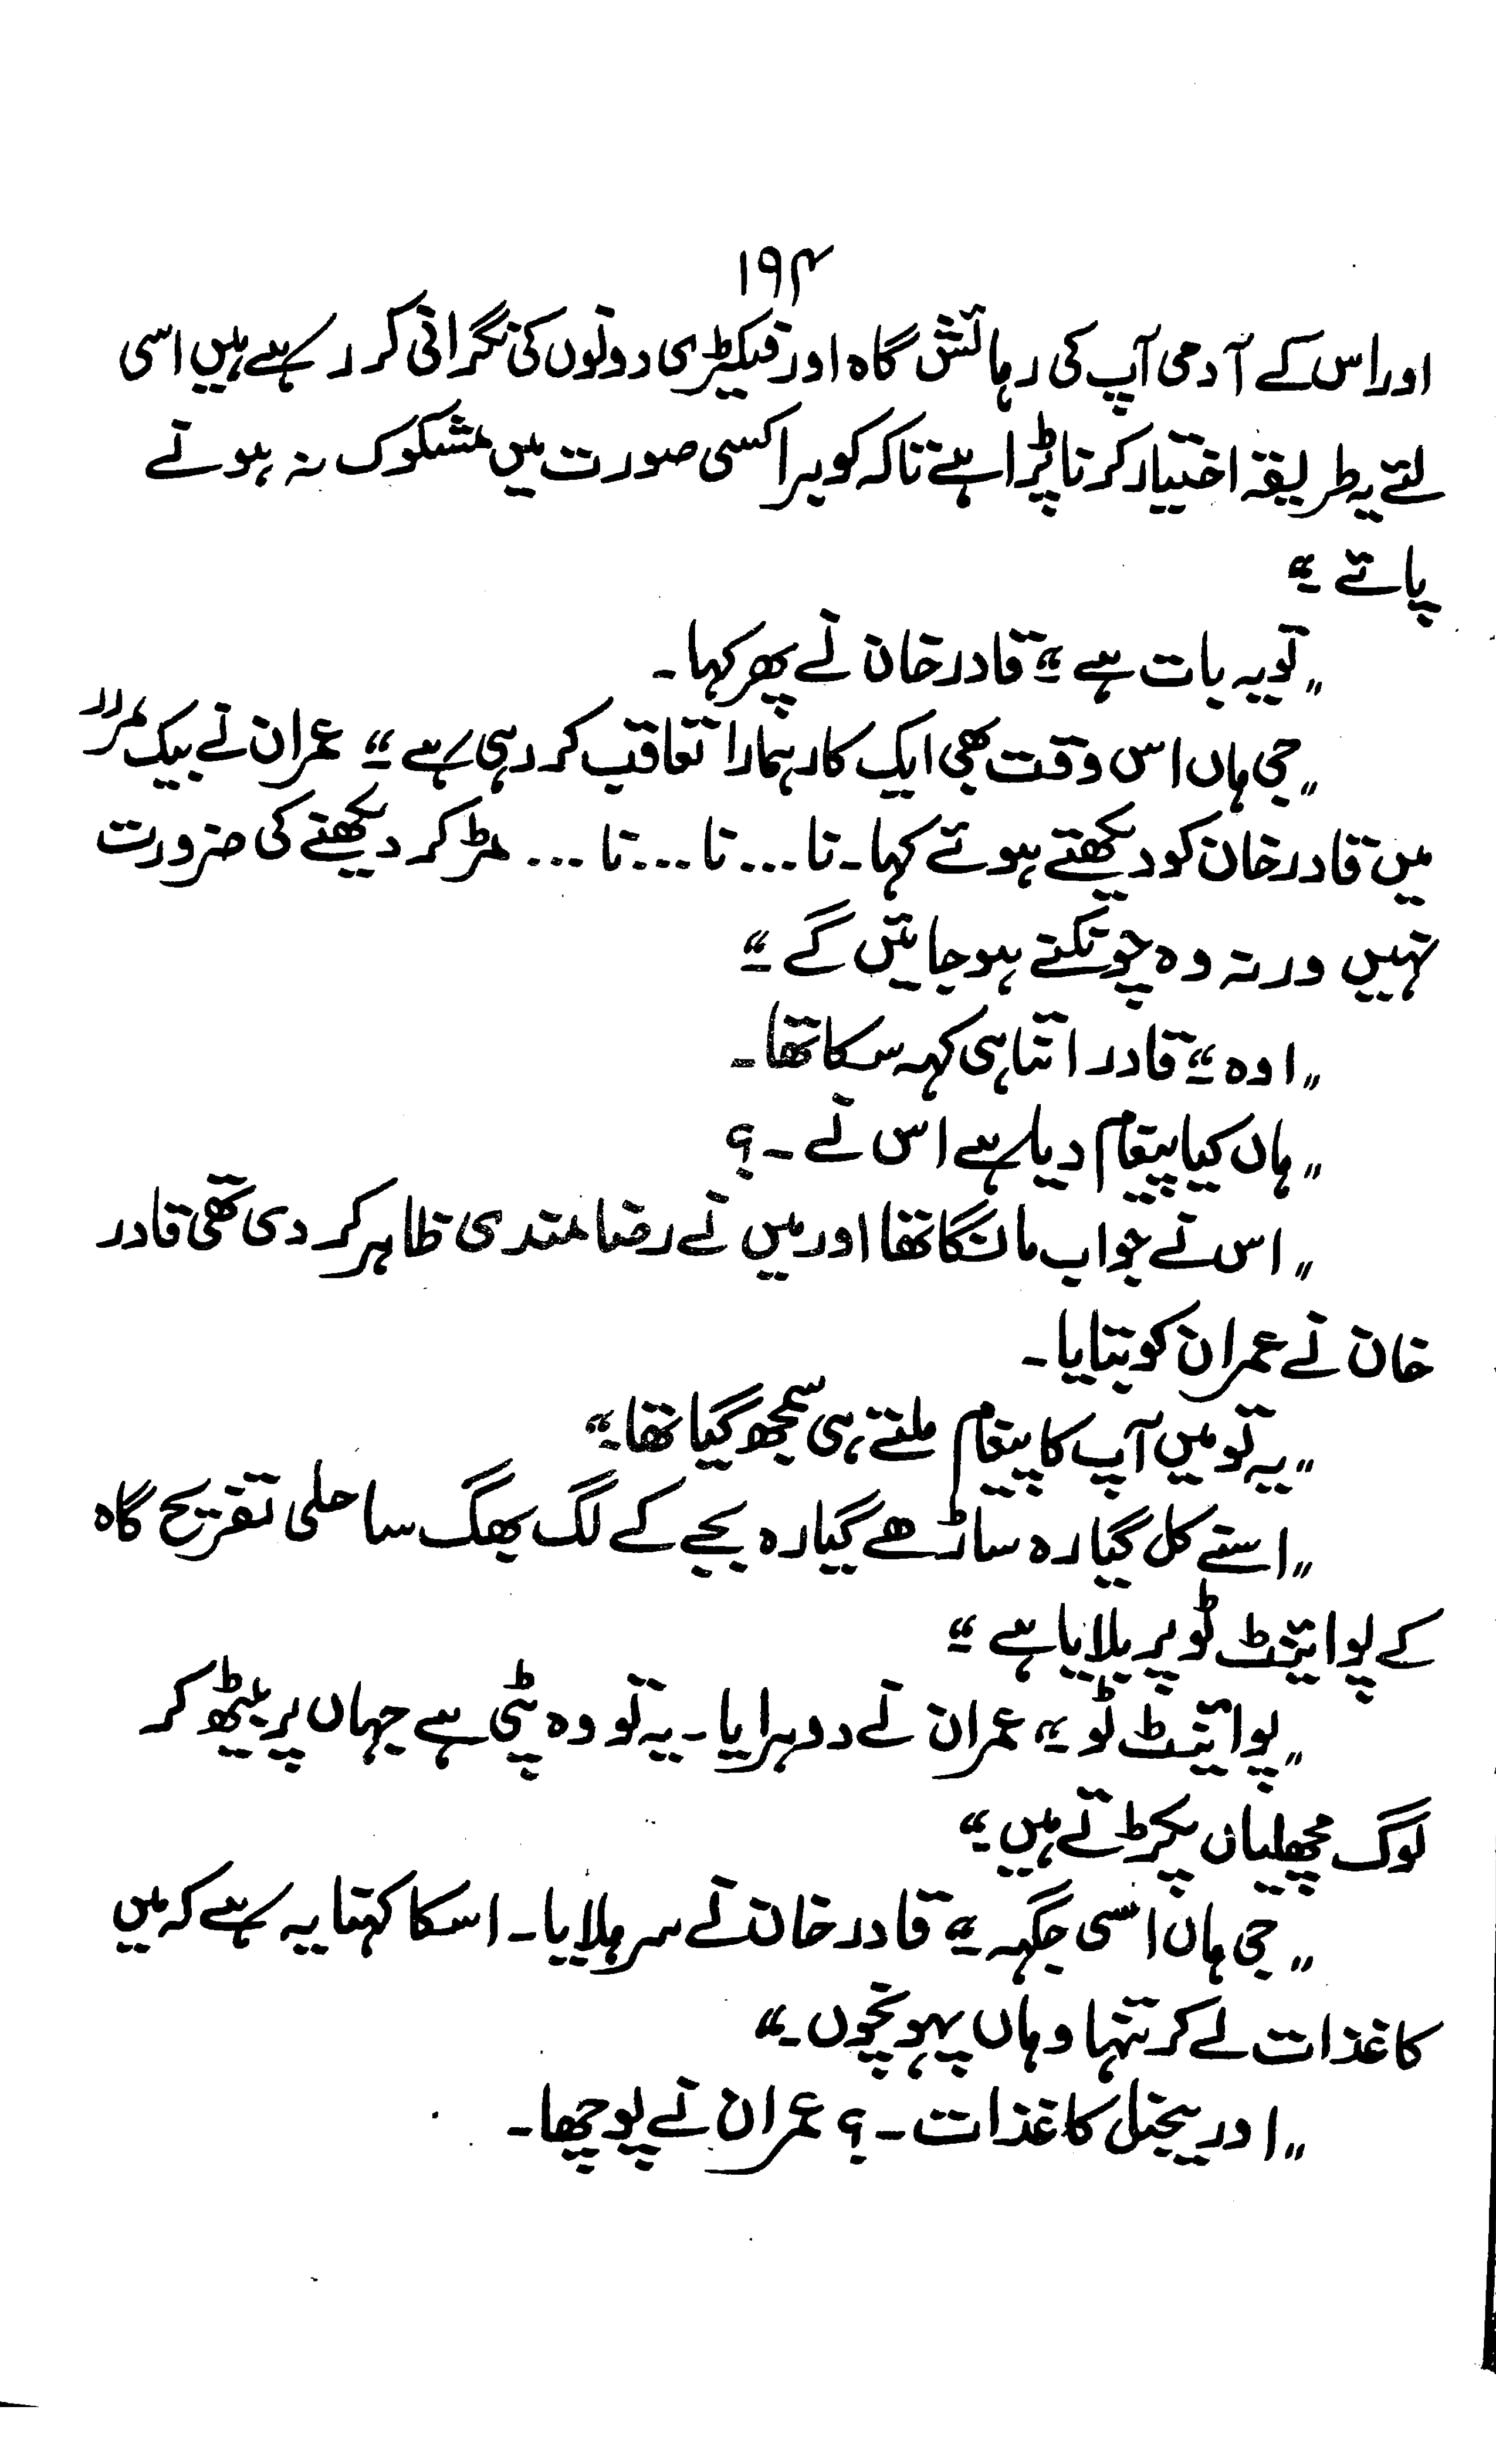 ۱۹۴
اور اس کے آدمی آپ کی رہائش گاہ اور فیکٹری دونوں کی نگرانی کر رہے ہیں اسی
لئے یہ طریقہ اختیار کرنا پڑا ہے تاکہ کوبرا کسی صورت میں مشکوک نہ ہونے
پائے ۔“
”تو یہ بات ہے ۔“ قادر خان نے پھر کہا۔
”جی ہاں اس وقت بھی ایک کار ہمارا تعاقب کر رہی ہے ۔“ عمران نے بیک مرر
میں قادر خان کو دیکھتے ہوئے کہا۔ نا... نا... نا... مڑ کر دیکھنے کی ضرورت
نہیں ورنہ وہ چونکنے ہو جائیں گے ۔“
”اوہ ۔“ قادر اتنا ہی کہہ سکا تھا۔
”ہاں کیا پیغام دیا ہے اس نے ۔؟
”اس نے جواب مانگا تھا اور میں نے رضامندی ظاہر کر دی تھی قادر
خان نے عمران کو بتایا۔
”یہ تو میں آپ کا پیغام ملتے ہی سمجھ گیا تھا۔“
”اسنے کل گیارہ ساڑھے گیارہ بجے کے لگ بھگ ساحلی تفریح گاہ
کے پوائنٹ ٹو پر بلایا ہے ۔“
”پوائنٹ ٹو ۔“ عمران نے دوہرایا۔ یہ تو وہ پٹی ہے جہاں پر بیٹھ کر
لوگ مچھلیاں پکڑتے ہیں ۔“
”جی ہاں اسی جگہ ۔“ قادر خان نے سر ہلایا۔ اسکا کہنا یہ ہے کہ میں
کاغذات لے کر تنہا وہاں پہونچوں ۔“
”اوریجنل کاغذات ۔؟ عمران نے پوچھا۔